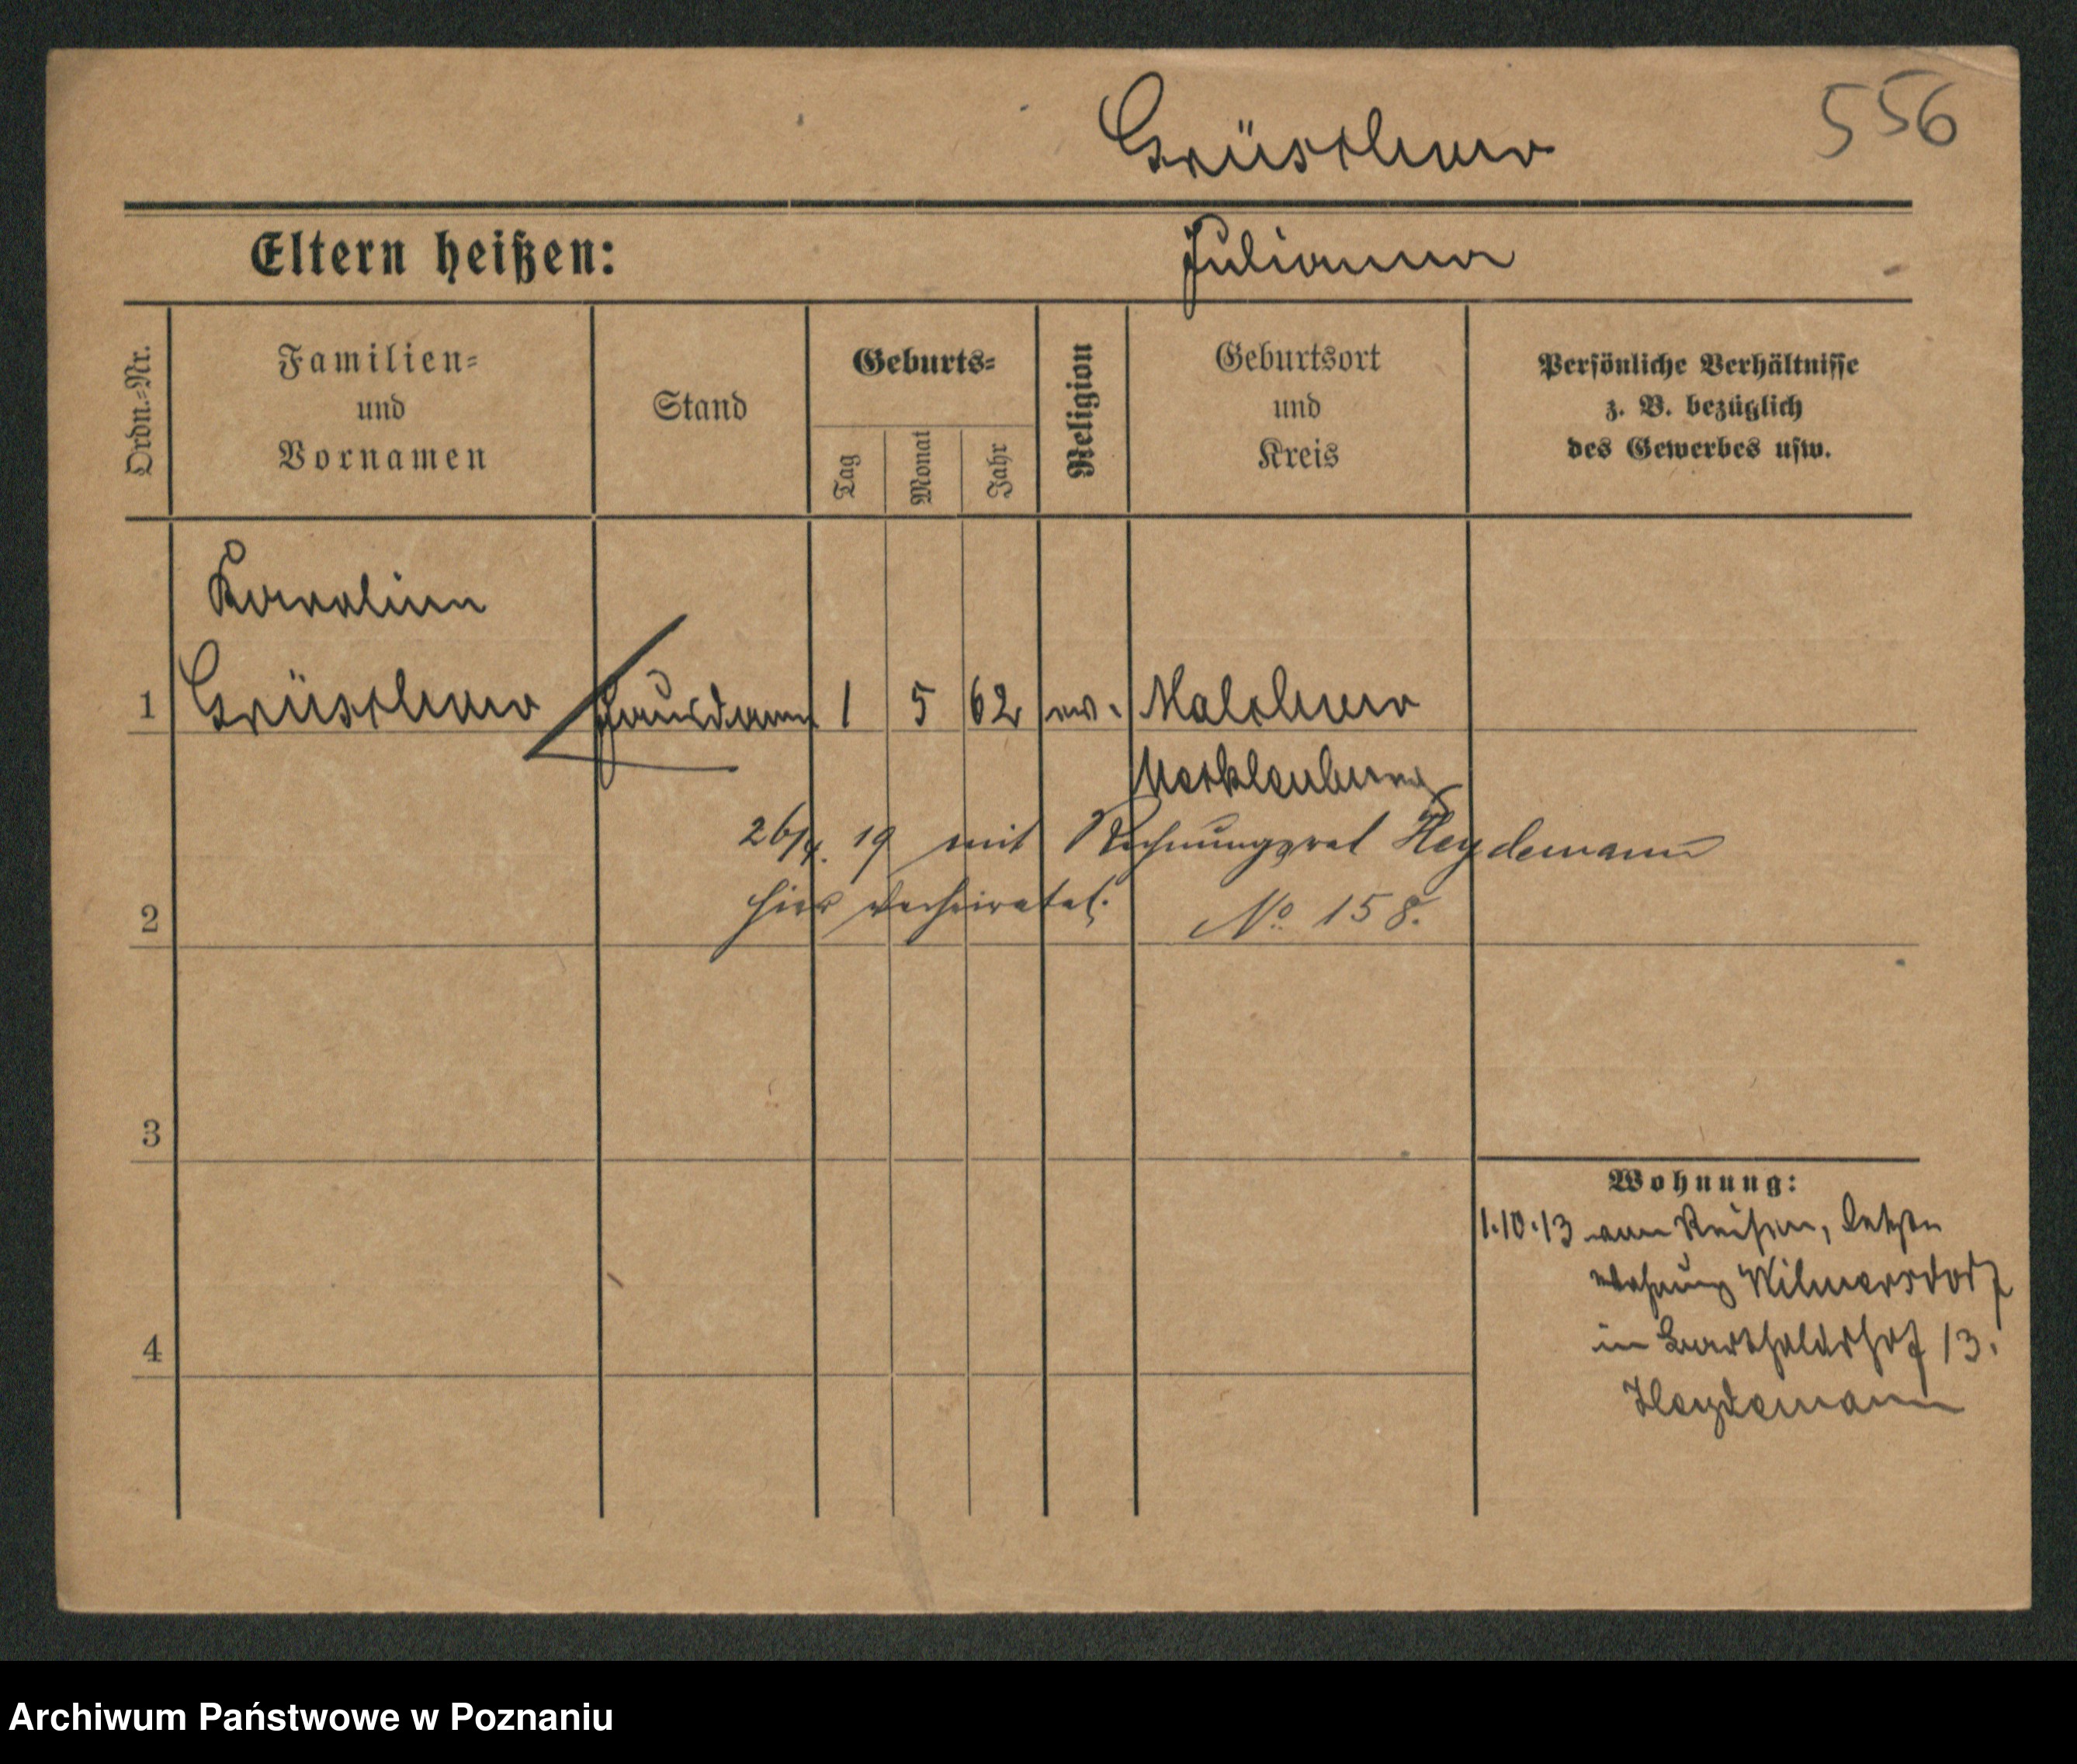 Grüschow
556
Eltern heißen:
Julianna
Ordn.-Nr.
Familien-
und
Vornamen
Stand
Geburts-
Tag
Monat
Jahr
Religion
Geburtsort
und
Kreis
Persönliche Verhältnisse
z. B. bezüglich
des Gewerbes usw.
1
Grüschow
Hausdame
1
5
62
ev.
Malchow
Mecklenburg
26/4. 19 mit Rechnungsrat Heydemann
2
hier verheiratet. No. 158.
3
4
Wohnung:
1.10.13 von Reisen, letzte
Wohnung Wilmersdorf
in 13.
Heydemann
Archiwum Państwowe w Poznaniu